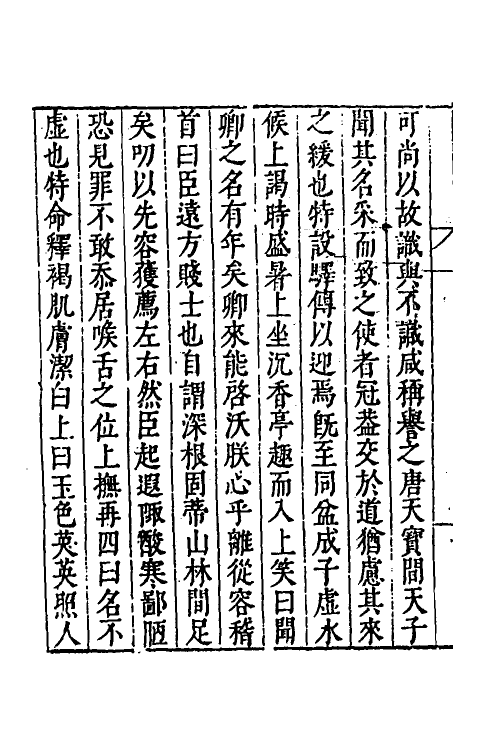 可尚以故識與不識咸稱譽之唐天寶間天子
聞其名采而致之使者冠蓋交於道猶慮其來
之緩也特設驛傳以迎焉旣至同盆成子虛水
候上謁時盛暑上坐沉香亭趣而入上笑曰聞
卿之名有年矣卿來能啓沃朕心乎離從容稽
首曰臣遠方賤士也自謂深根固蒂山林間足
矣叨以先容獲薦左右然臣起遐陬酸寒鄙陋
恐見罪不敢忝居喉舌之位上撫再四曰名不
虛也特命釋褐肌膚潔白上曰玉色英英照人